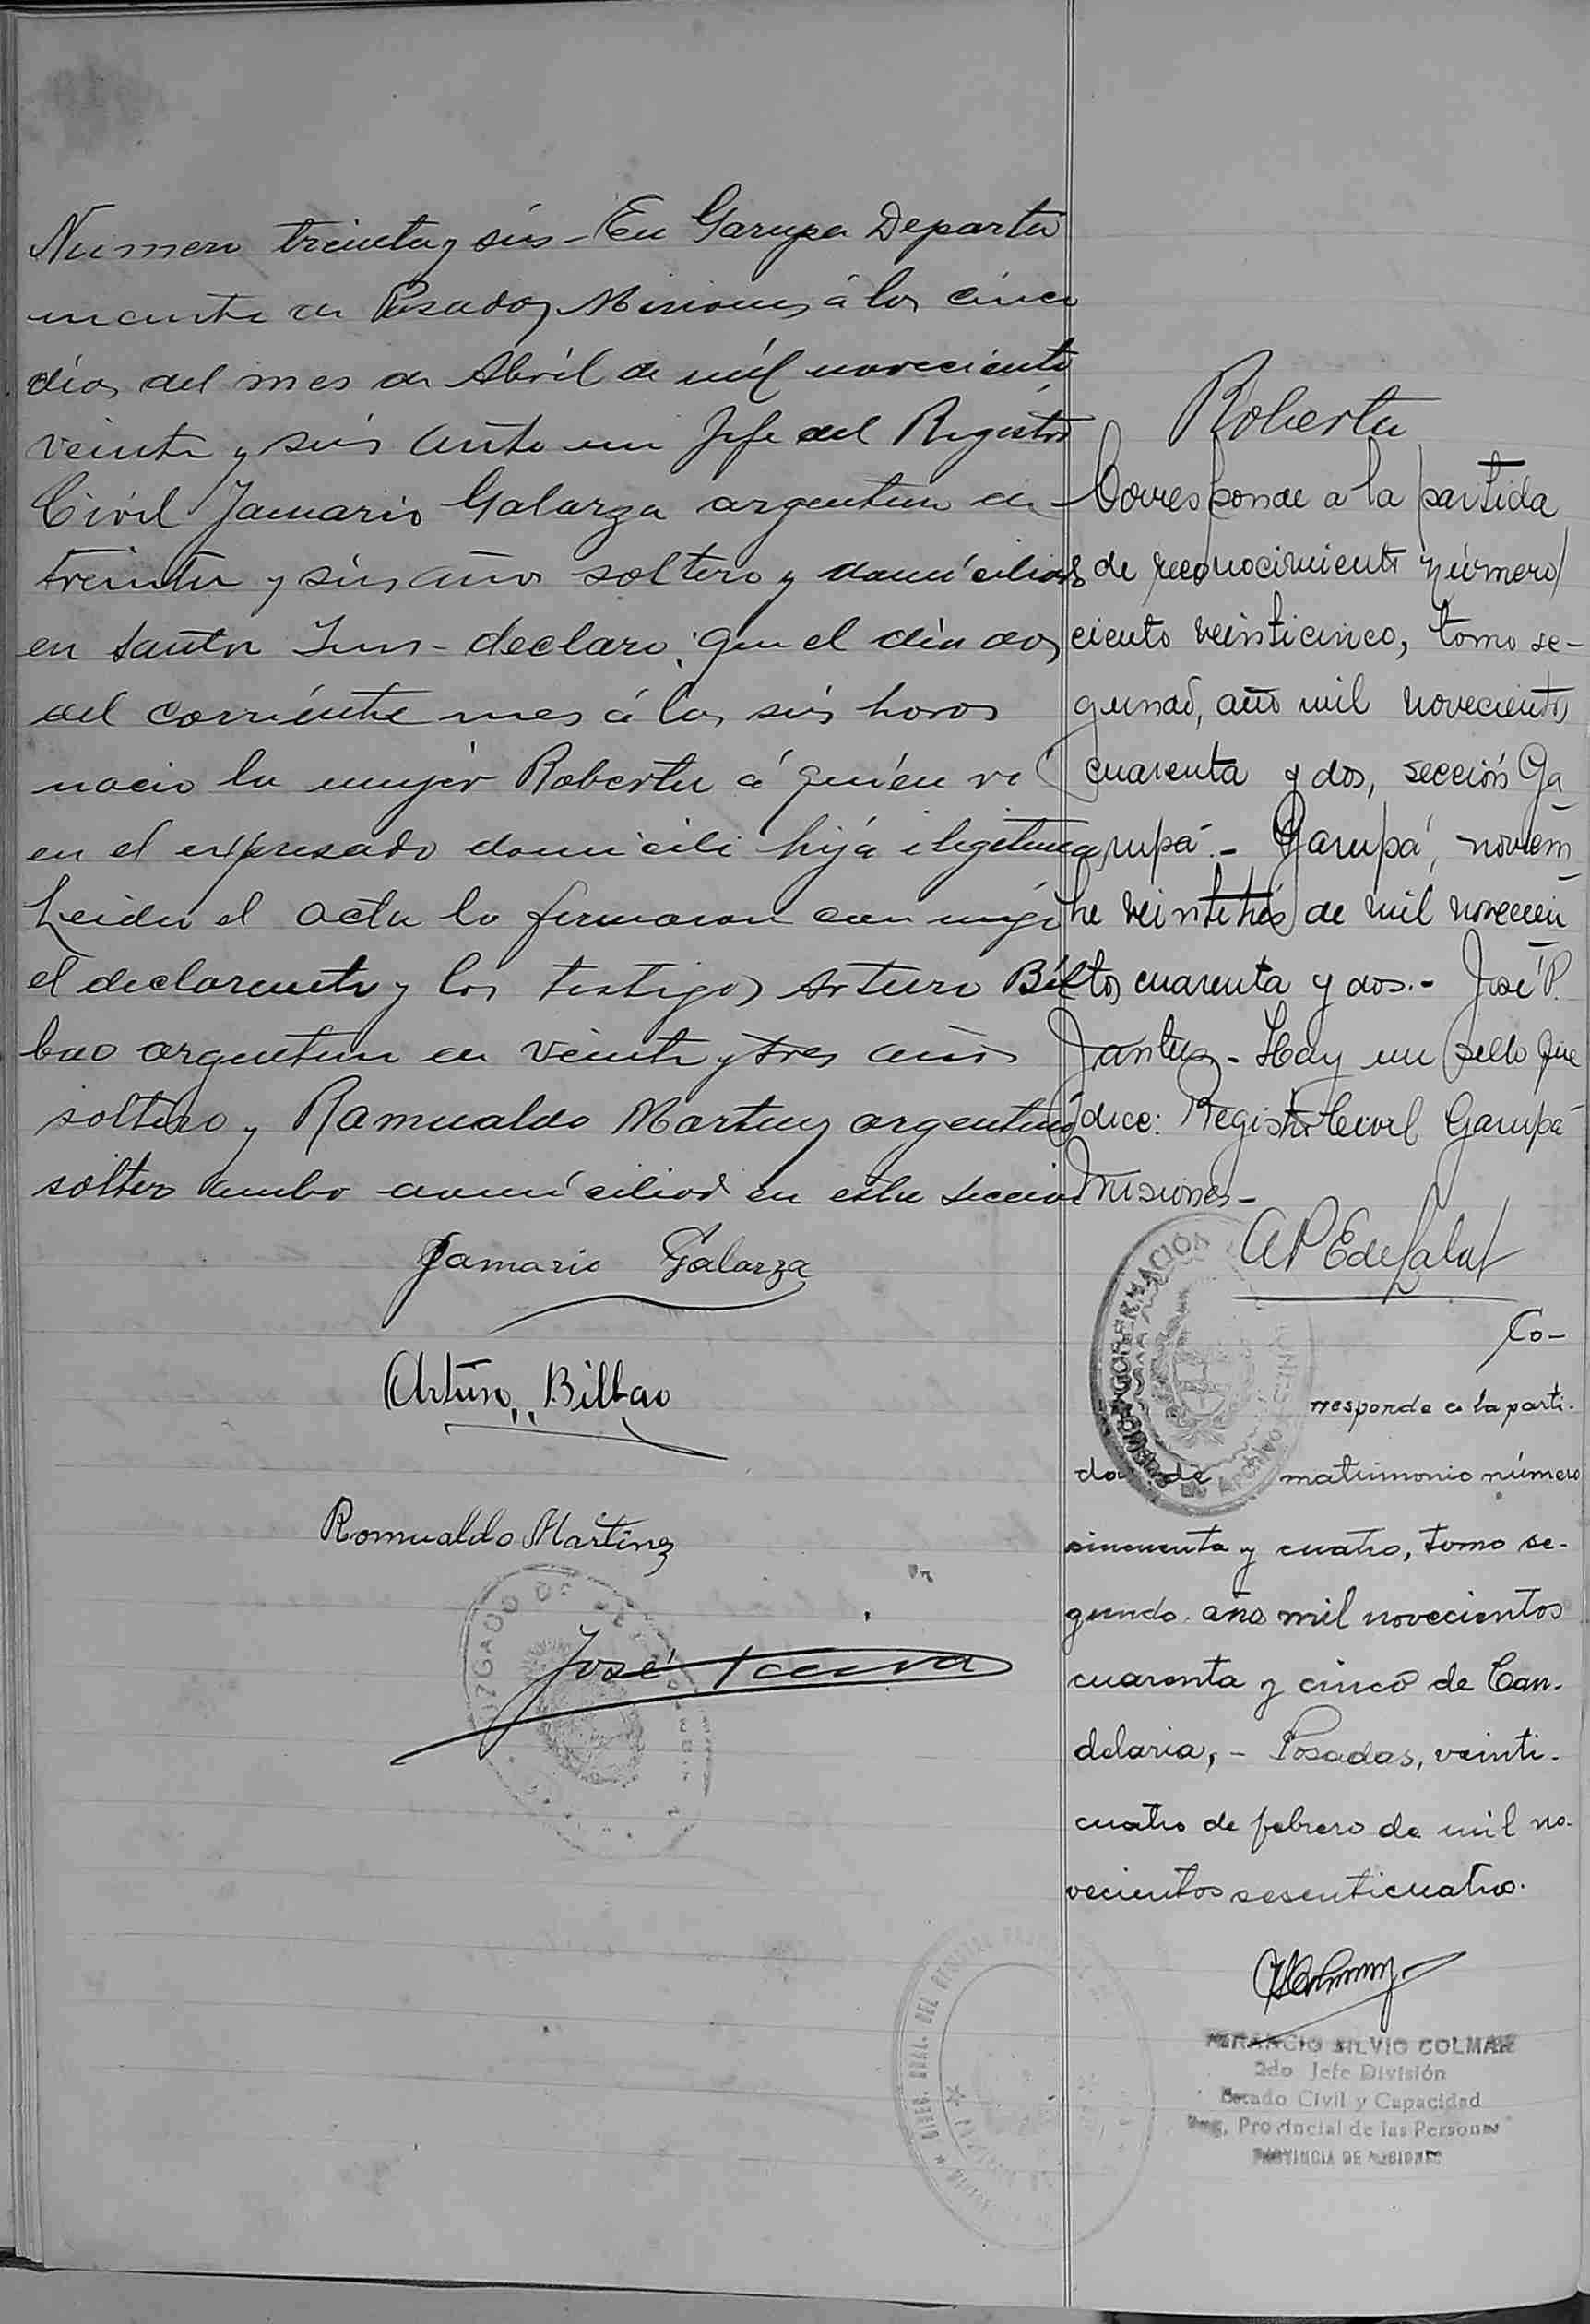 Numero treinta y seis - En Garupa Departa
mento de Posadas Misiones á los cinco
dias del mes de Abril de mil novecientos
veinte y seis ante mi Jefe del Registro
Civil Januario Galarza argentino de
treinta y seis años soltero y domiciliado
en Santa Ines - declaro: que el dia dos
del corriente mes á las seis horas
nacio la mujer Roberta á quien vi
en el expresado domicili hija ilegitima
Leida el acta la firmaron con migo
el declarante y los testigos Arturo Bil
bao argentino de veinte y tres años
soltero y Ramualdo Martinez argentino
soltero ambo domiciliados en esta seccion
Januario Galarza
Arturo Bilbao
Romualdo Martinez
José
Roberta
Corresponde a la partida
de reconocimiento número
ciento veinticinco, tomo se-
gundo, año mil novecientos
cuarenta y dos, sección Ga
rupá.- Garupá, noviem
bre veintitrés de mil novecien
tos cuarenta y dos.- José P.
Hay un sello que
dice: Registro Civil Garupá
Misiones-
GOBERNACION
ARCHIVO
Co-
rresponde a la parti-
da de matrimonio número
cincuenta y cuatro, tomo se-
gundo año mil novecientos
cuarenta y cinco de Can-
delaria,- Posadas, veinti-
cuatro de febrero de mil no-
vecientos sesenticuatro.
SILVIO COLMAN
2do Jefe División
Estado Civil y Capacidad
Reg. Provincial de las Personas
PROVINCIA DE MISIONES